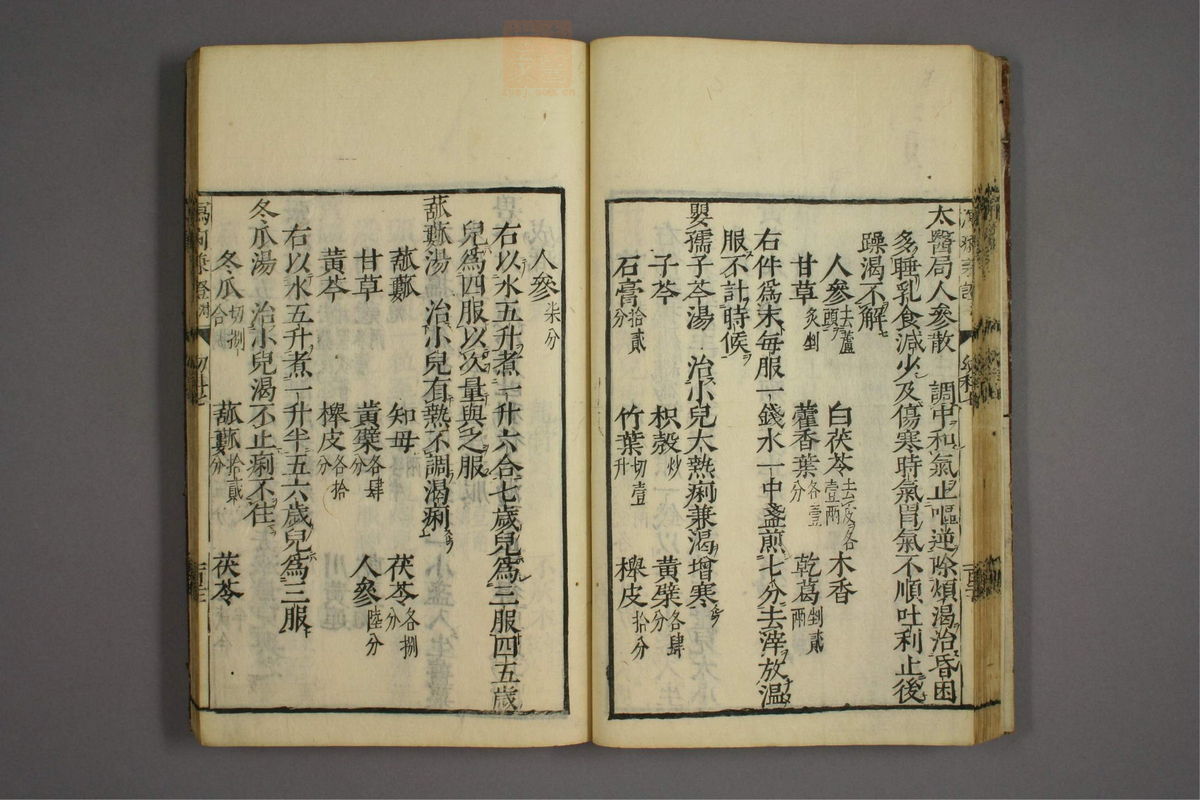 太醫局人參散 調中和氣止嘔逆除煩渴治昏困
多睡乳食減少及傷寒時氣胃氣不順吐利止後
躁渴不解
人參去蘆頭 白茯苓去皮各壹兩 木香
甘草炙剉 藿香葉各壹分 乾葛剉貳兩
右件為末每服一錢水一中盞煎七分去滓放温
服不計時候
嬰孺子芩湯 治小兒大熱痢兼渴增寒
子芩 枳殼炒 黃蘗各肆分
石膏拾貳分 竹葉切壹升 樺皮拾分
人參柒分
右以水五升煮一升六合七歲兒為三服四五歲
兒為四服以次量與之服
菰蔌湯 治小兒有熱不調渴痢
菰蔌 知母 茯苓各捌分
甘草 黃蘗各肆分 人參陸分
黃芩 樺皮各拾分
右以水五升煮一升半五六歲兒為三服
冬瓜湯 治小兒渴不止痢不住
冬瓜切捌合 菰蔌拾貳分 茯苓